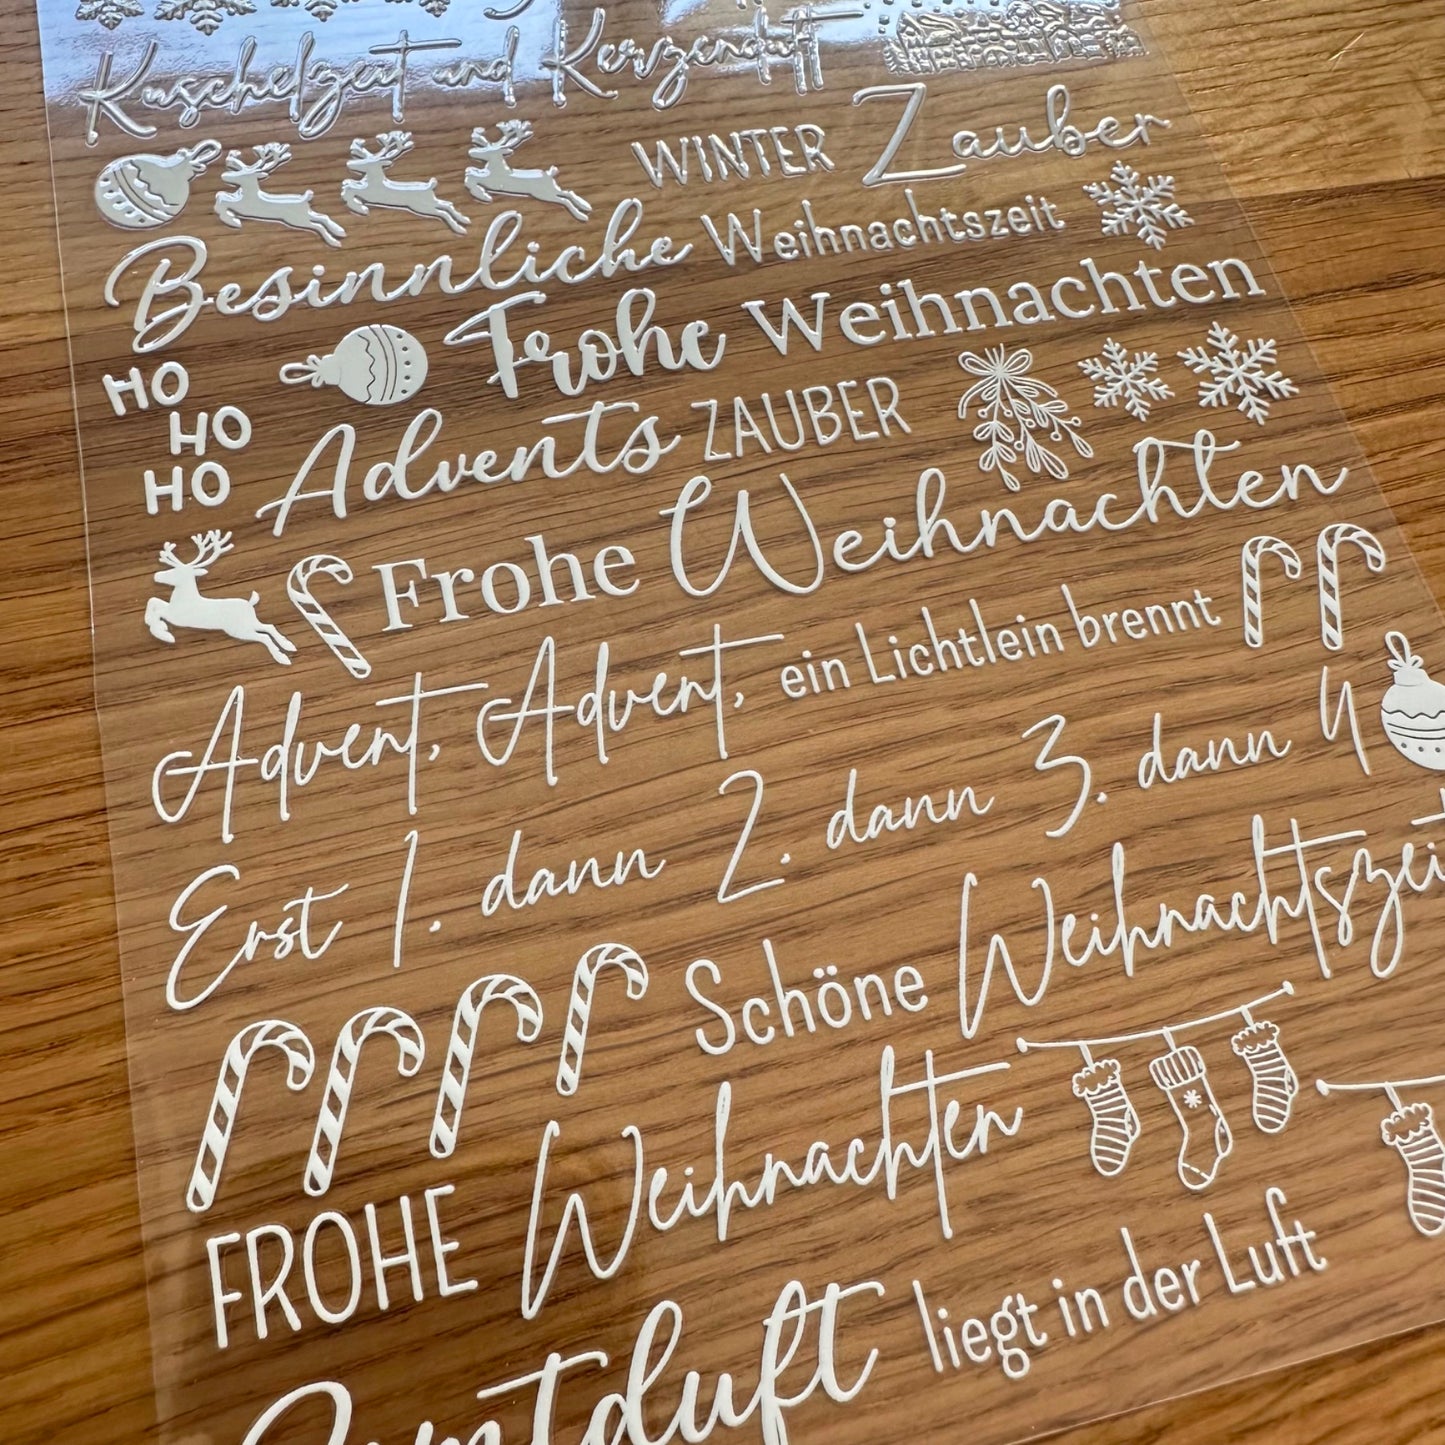 Kuschelzeit und Kerzenduft
WINTER Zauber
Besinnliche Weihnachtszeit
Frohe Weihnachten
HO
HO
HO
Advents ZAUBER
Frohe Weihnachten
Advent, Advent, ein Lichtlein brennt
Erst 1. dann 2. dann 3. dann 4
Schöne Weihnachtszeit
FROHE Weihnachten
liegt in der Luft